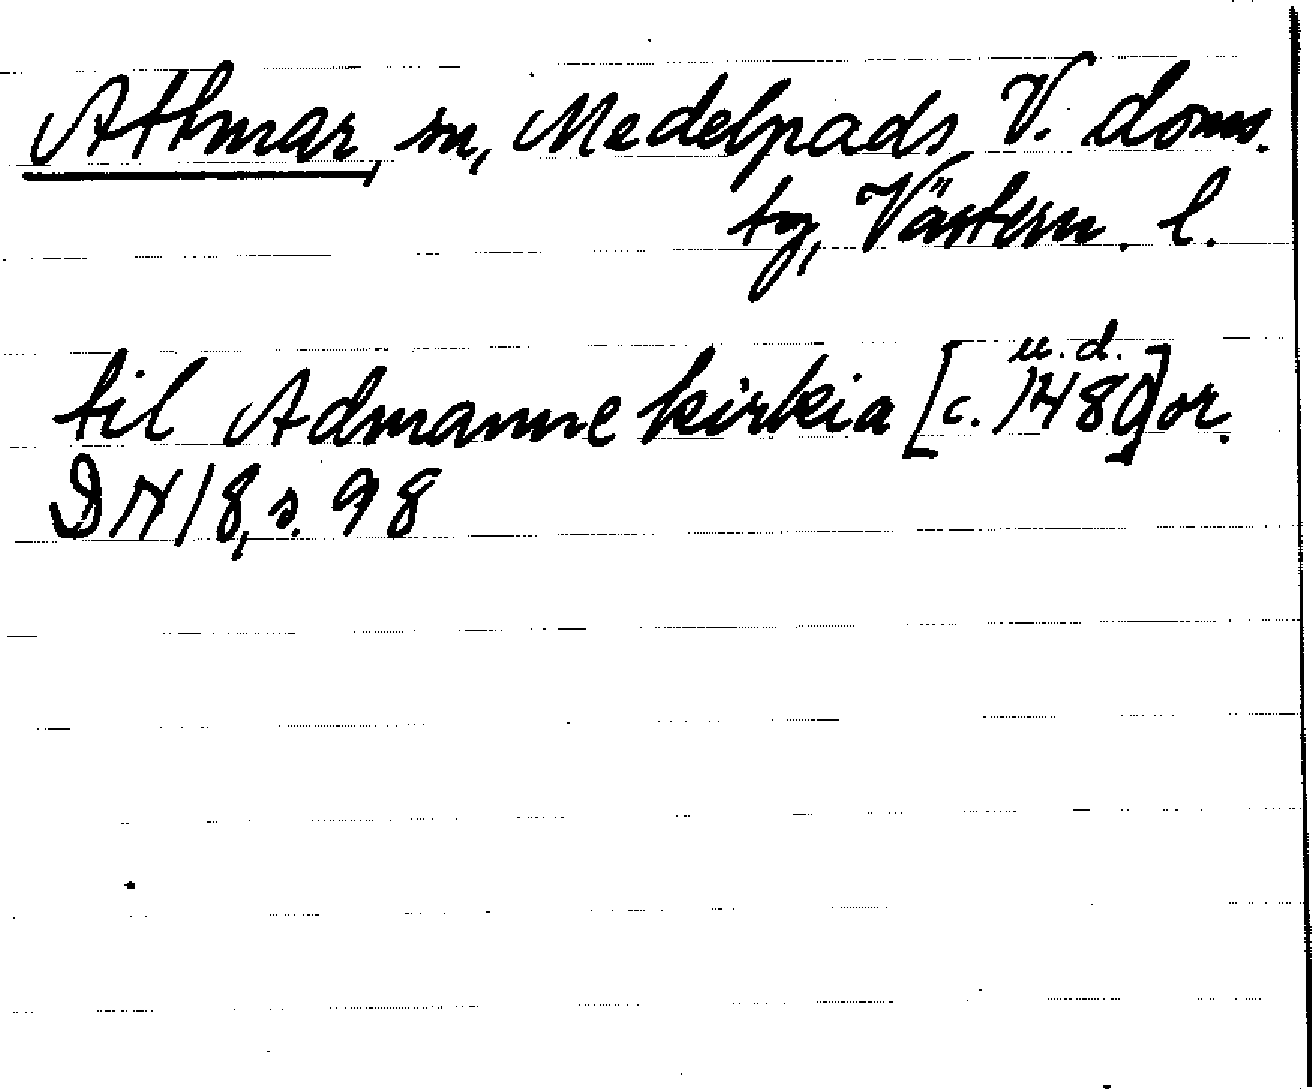 Attmar, sn, Medelpads V. doms.
tg, Västern. l.
til Admanne kirkia [c. 1480 u.d.] or.
DN 18, s. 98